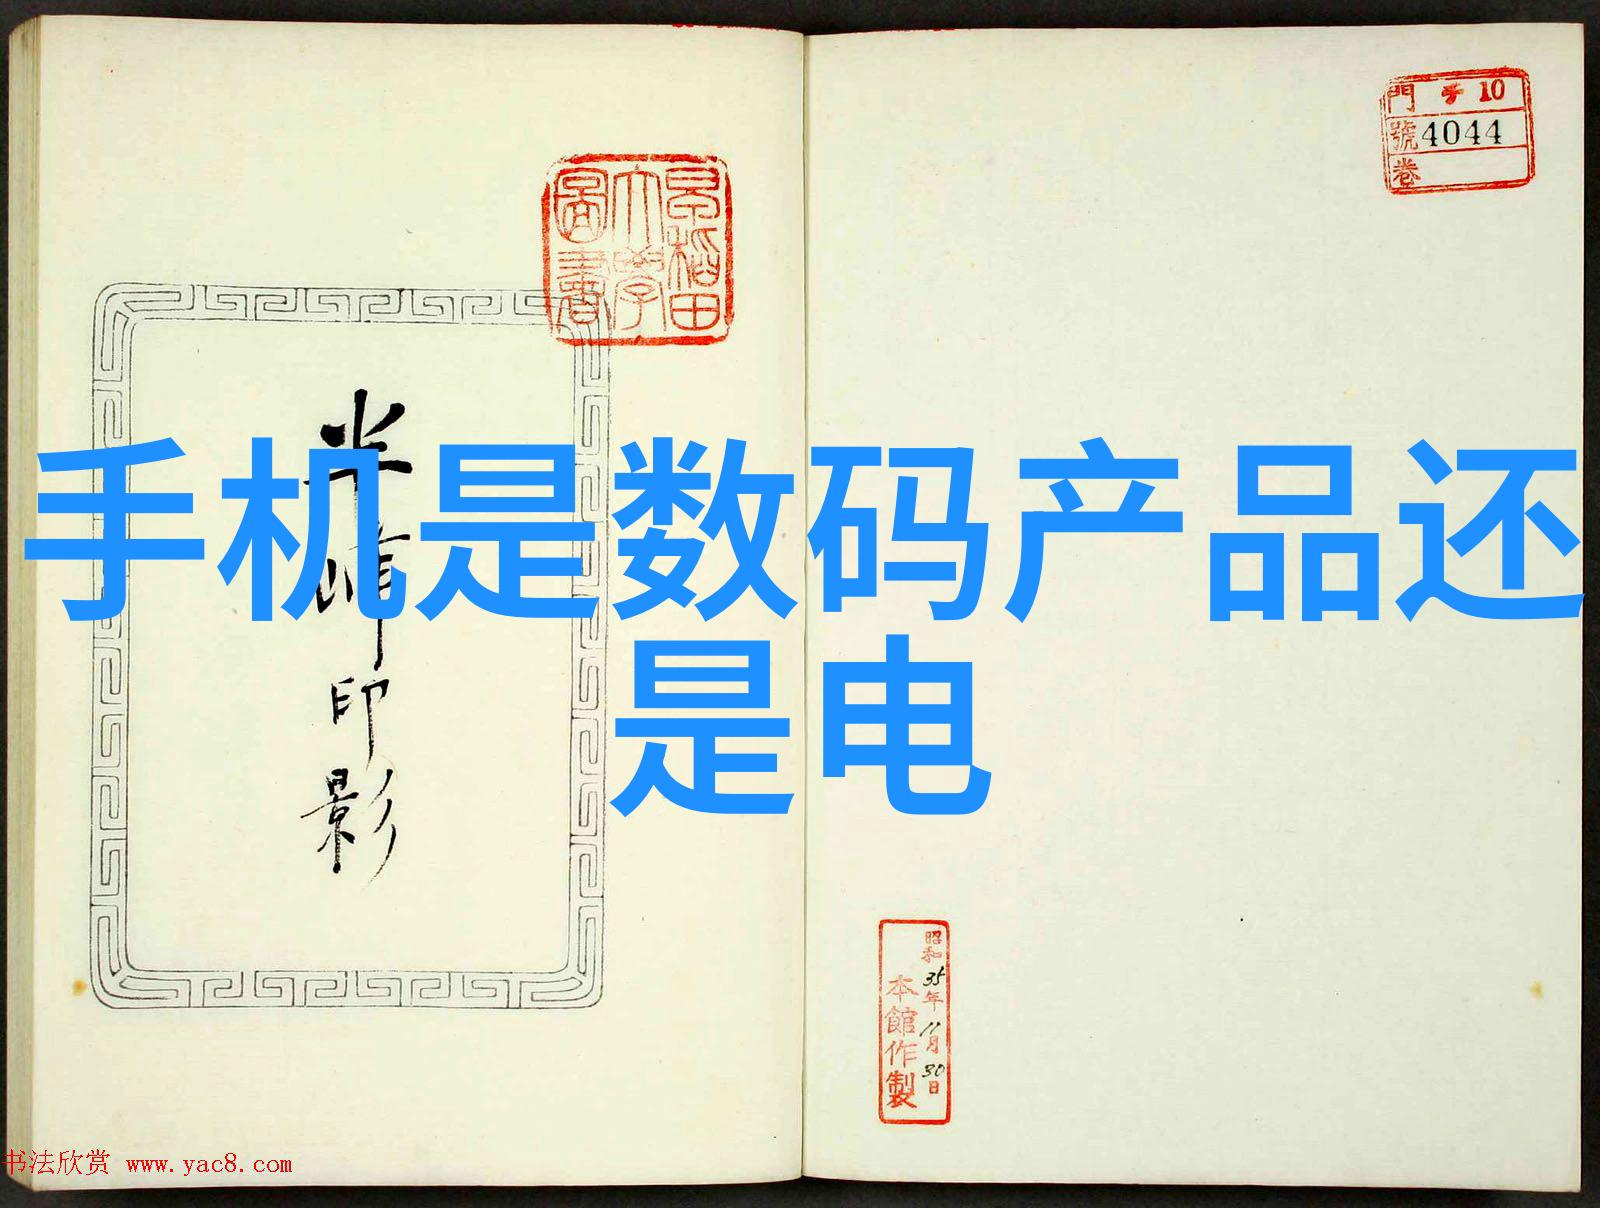 手机是数码产品还
是电
半峰印影
早稻田
大學
圖書
門 チ 10
號 4044
卷
昭和35年11月30日
本館作製
书法欣赏 www.yac8.com